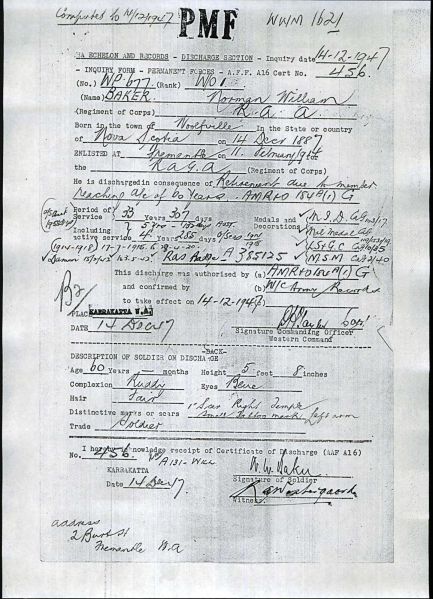 Computed to 14/12/1947
PMF
WWM 1621
3A ECHELON AND RECORDS - DISCHARGE SECTION - Inquiry date 14-12-1947
- INQUIRY FORM - PERMANENT FORCES - A.F.F. A16 Cert No. 456
(No.) WP 677 (Rank) WO1
(Name) BAKER Norman William
(Regiment of Corps) R.A.A.
Born in the town of Woolfville In the State or country
of Nova Scotia on 14 Decr 1887
ENLISTED AT Fremantle on 11 February 1914 for
the RAGA (Regiment of Corps)
He is discharged in consequence of Retirement due to member
reaching age of 60 years. AMR&O 184(1) G
Period of Service 33 Years 307 days
Medals and Decorations
Including
active service 4 years days
(1914-1918)
✓ L.S. & G.C.
✓ M.S.M
385125
This discharge was authorised by (a) AMR&O 184(1) G
and confirmed by (b) W/C Army Records
to take effect on 14-12-1947
PLACE KARRAKATTA W.A.
DATE 14 Dec 47
Signature Commanding Officer
Western Command
-BACK-
DESCRIPTION OF SOLDIER ON DISCHARGE
Age 60 Years — months Height 5 feet 8 inches
Complexion Ruddy Eyes Blue
Hair Fair
Distinctive marks or scars 1" Scar Right Temple
Small Tattoo mark left arm
Trade Soldier
I hereby acknowledge receipt of Certificate of Discharge (AAF A16)
No. 456
KARRAKATTA
N. W. Baker
Signature of Soldier
Date 14 Dec 47
Witness.
address
2 Burt St
Fremantle W.A